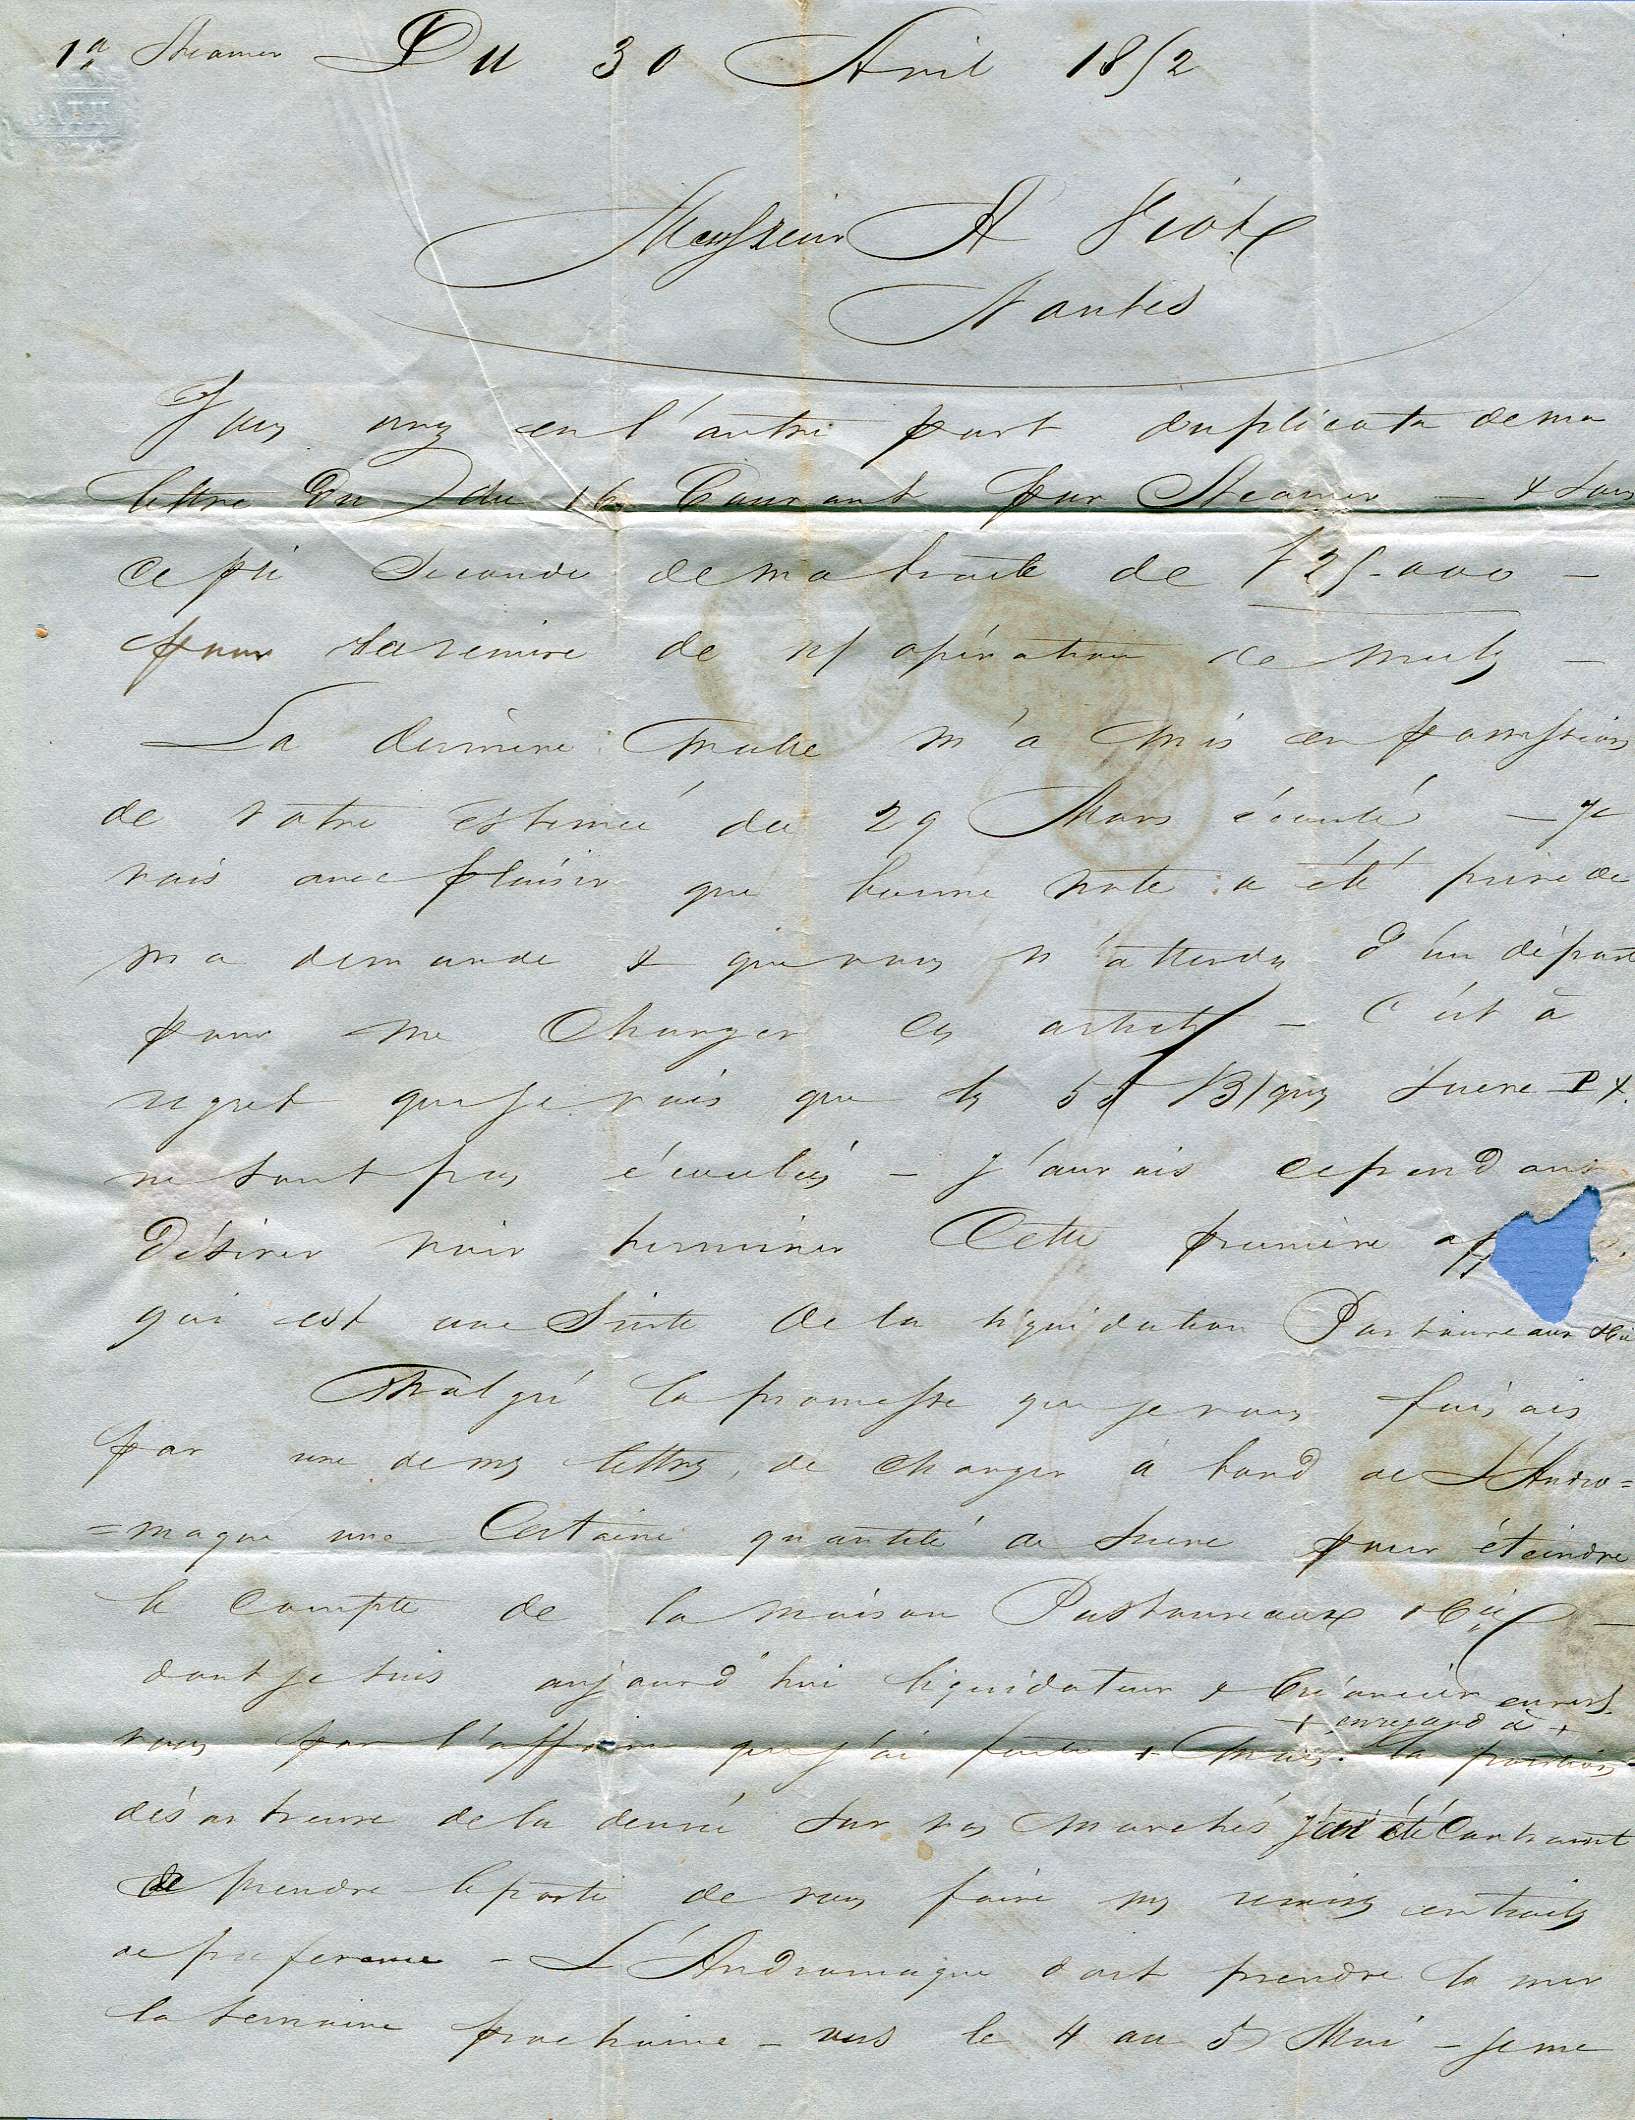 1ª Steamer Du 30 Avril 1852
BATH
Monsieur A Viot
Nantes
Vous avez en l'autre part duplicata de ma
lettre du 16 Courant par Steamer — & sous
ce pli Seconde de ma traite de f 25.000 —
pour de n/ opération de mulets —
La dernière Malle m'a mis en possession
de votre estimée du 29 Mars écoulé — Je
vois avec plaisir que bonne note a été prise de
ma demande & que vous n'attendez d'un départ
pour me Charger ces — C'est à
regret que je vois que les 55 B/ques Sucre P+
ne sont pas écoulées — J'aurais cependant
désirer voir terminer Cette première
qui est une Suite de la liquidation Pastoureaux & Cie
Malgré la promesse que je vous faisais
par une de mes lettres, de charger à bord de L'Andro=
=maque une Certaine quantité de Sucre pour éteindre
le Compte de la maison Pastoureaux & Cie —
dont je suis aujourd'hui liquidateur & Créancier envers
+ en regard à +
vous par l'affaire que j'ai faite + Mais la position
désastreuse de la denrée sur nos marchés j'ai été Contraint
de prendre le parti de vous faire mes remises en traites
de preference — L'Andromaque doit prendre la mer
la semaine prochaine — vers le 4 au 5 Mai — Je me